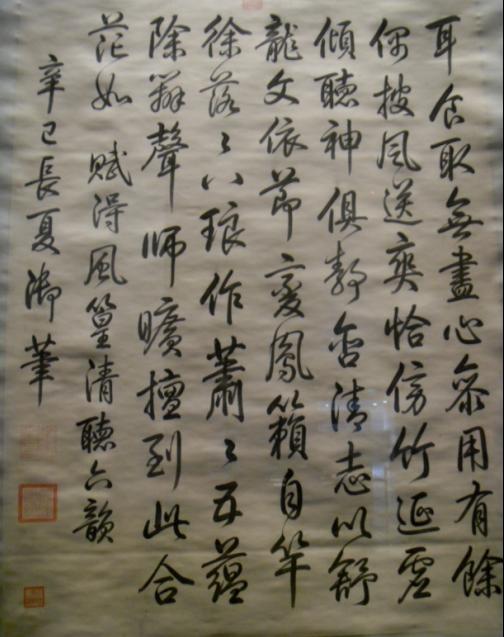 耳食取無盡心齋用有餘
偶披風送爽恰傍竹延虛
傾聽神俱靜含清志以舒
龍文依節變鳳籟自竿
徐落〻八琅作蕭〻五蘊
除辨聲師曠擅到此合
茫如 賦得風篁清聽六韻
辛巳長夏御筆